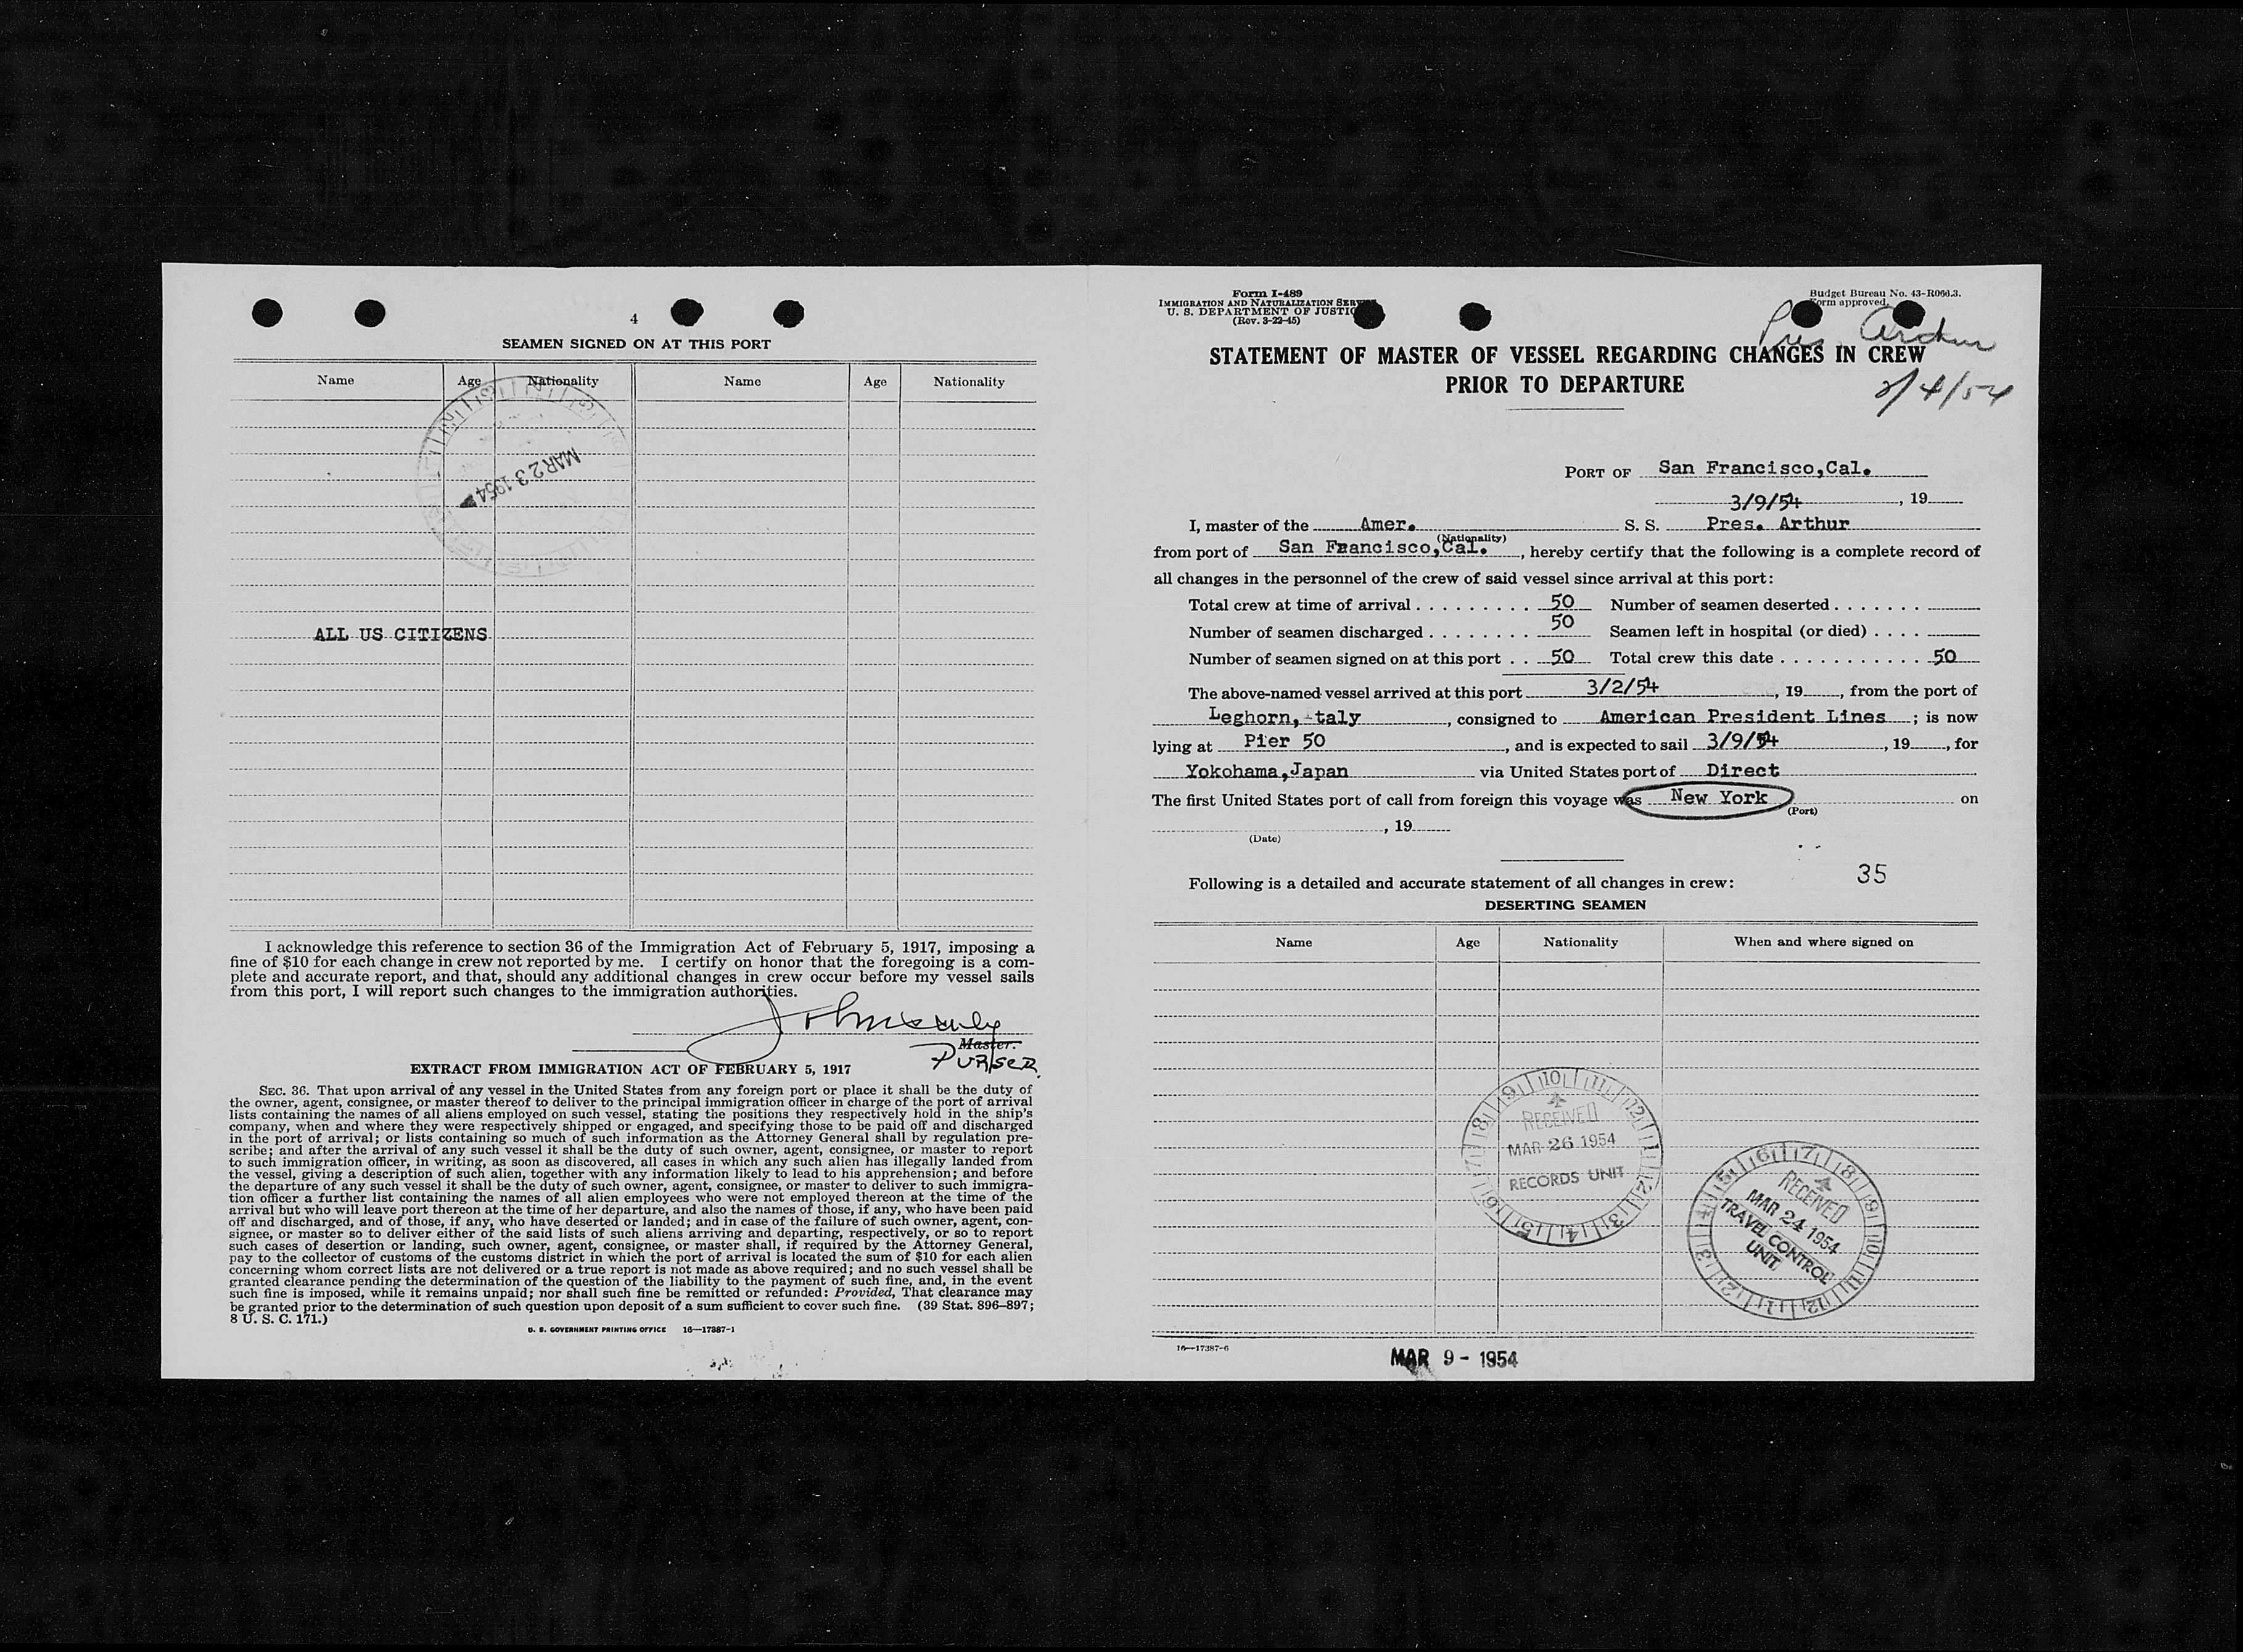 4
SEAMEN SIGNED ON AT THIS PORT
Name Age Nationality Name Age Nationality
MAR 23 1954
ALL US CITIZENS
I acknowledge this reference to section 36 of the Immigration Act of February 5, 1917, imposing a
fine of $10 for each change in crew not reported by me. I certify on honor that the foregoing is a com-
plete and accurate report, and that, should any additional changes in crew occur before my vessel sails
from this port, I will report such changes to the immigration authorities.
Master.
PURSER
EXTRACT FROM IMMIGRATION ACT OF FEBRUARY 5, 1917
SEC. 36. That upon arrival of any vessel in the United States from any foreign port or place it shall be the duty of
the owner, agent, consignee, or master thereof to deliver to the principal immigration officer in charge of the port of arrival
lists containing the names of all aliens employed on such vessel, stating the positions they respectively hold in the ship's
company, when and where they were respectively shipped or engaged, and specifying those to be paid off and discharged
in the port of arrival; or lists containing so much of such information as the Attorney General shall by regulation pre-
scribe; and after the arrival of any such vessel it shall be the duty of such owner, agent, consignee, or master to report
to such immigration officer, in writing, as soon as discovered, all cases in which any such alien has illegally landed from
the vessel, giving a description of such alien, together with any information likely to lead to his apprehension; and before
the departure of any such vessel it shall be the duty of such owner, agent, consignee, or master to deliver to such immigra-
tion officer a further list containing the names of all alien employees who were not employed thereon at the time of the
arrival but who will leave port thereon at the time of her departure, and also the names of those, if any, who have been paid
off and discharged, and of those, if any, who have deserted or landed; and in case of the failure of such owner, agent, con-
signee, or master so to deliver either of the said lists of such aliens arriving and departing, respectively, or so to report
such cases of desertion or landing, such owner, agent, consignee, or master shall, if required by the Attorney General,
pay to the collector of customs of the customs district in which the port of arrival is located the sum of $10 for each alien
concerning whom correct lists are not delivered or a true report is not made as above required; and no such vessel shall be
granted clearance pending the determination of the question of the liability to the payment of such fine, and, in the event
such fine is imposed, while it remains unpaid; nor shall such fine be remitted or refunded: Provided, That clearance may
be granted prior to the determination of such question upon deposit of a sum sufficient to cover such fine. (39 Stat. 896–897;
8 U. S. C. 171.)
U. S. GOVERNMENT PRINTING OFFICE 16—17387-1
Form I-489
IMMIGRATION AND NATURALIZATION
U. S. DEPARTMENT OF
(Rev. 3-22-45)
Budget Bureau No. 43-R066.3.
Form approved.
Pres. Arthur
STATEMENT OF MASTER OF VESSEL REGARDING CHANGES IN CREW
PRIOR TO DEPARTURE
PORT OF San Francisco,Cal.
3/9/54, 19
I, master of the Amer. S. S. Pres. Arthur
(Nationality)
from port of San Francisco,Cal., hereby certify that the following is a complete record of
all changes in the personnel of the crew of said vessel since arrival at this port:
Total crew at time of arrival 50 Number of seamen deserted
Number of seamen discharged 50 Seamen left in hospital (or died)
Number of seamen signed on at this port 50 Total crew this date 50
The above-named vessel arrived at this port 3/2/54, 19, from the port of
Leghorn, taly, consigned to American President Lines; is now
lying at Pier 50, and is expected to sail 3/9/54, 19, for
Yokohama,Japan via United States port of Direct
The first United States port of call from foreign this voyage was New York on
(Port)
, 19
(Date)
35
Following is a detailed and accurate statement of all changes in crew:
DESERTING SEAMEN
Name Age Nationality When and where signed on
RECEIVED
MAR 26 1954
RECORDS UNIT
RECEIVED
MAR 24 1954
TRAVEL CONTROL
UNIT
16—17387-6
MAR 9 - 1954